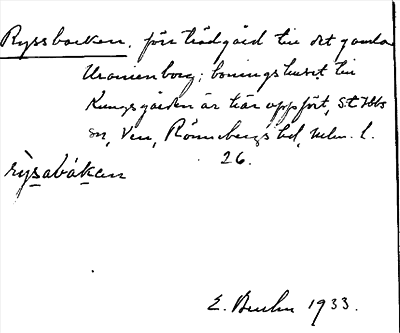 Ryssbacken. förr trädgård till det gamla
Uranienborg; boningshuset till
Kungsgården är här uppfört, S:t Ibbs
sn, Ven, Rönnebergs hd, Malm. l.
26.
rỳsabák̬an
E. Bruhn 1933.